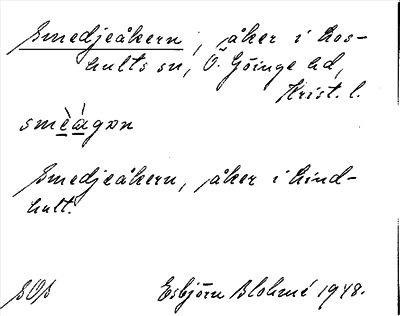 Smedjeåkern, åker i Los-
hults sn, Ö. Göinge hd,
Krist. l.
Smedjeåkern, åker i Hind-
hult.
Esbjörn Blohmé 1948.